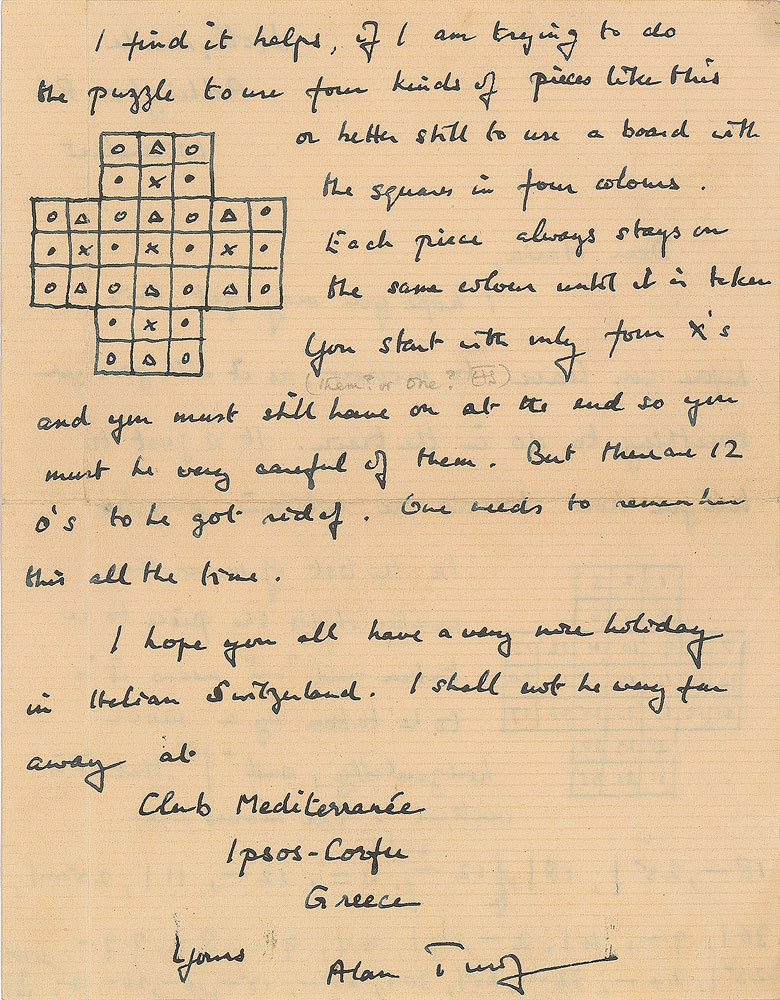 I find it helps, if I am trying to do
the puzzle to use four kinds of pieces like this
or better still to use a board with
the squares in four colours.
Each piece always stays on
the same colour until it is taken
You start with only four X's
(them? or one?
and you must still have on at the end so you
must be very careful of them. But there are 12
O's to be got rid of. One needs to remember
this all the time.
I hope you all have a very nice holiday
in Italian Switzerland. I shall not be very far
away at
Club Mediterranée
Ipsos-Corfu
Greece
Yours
Alan Turing
O Δ O
• X •
O Δ O Δ O Δ O
• X • X • X •
O Δ O Δ O Δ O
• X •
O Δ O